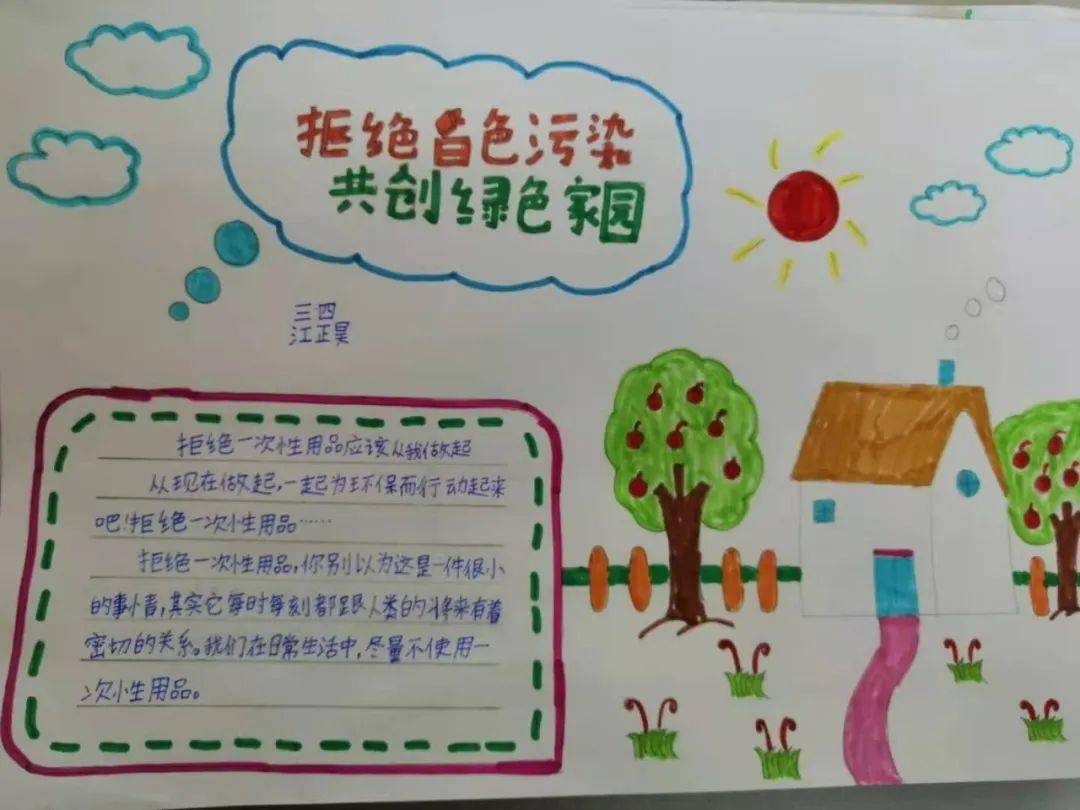 拒绝白色污染
共创绿色家园
三四
江正昊
拒绝一次性用品应该从我做起
从现在做起,一起为环保而行动起来
吧!拒绝一次性用品……
拒绝一次性用品,你别以为这是一件很小
的事情,其实它每时每刻都跟人类的将来有着
密切的关系。我们在日常生活中,尽量不使用一
次性用品。